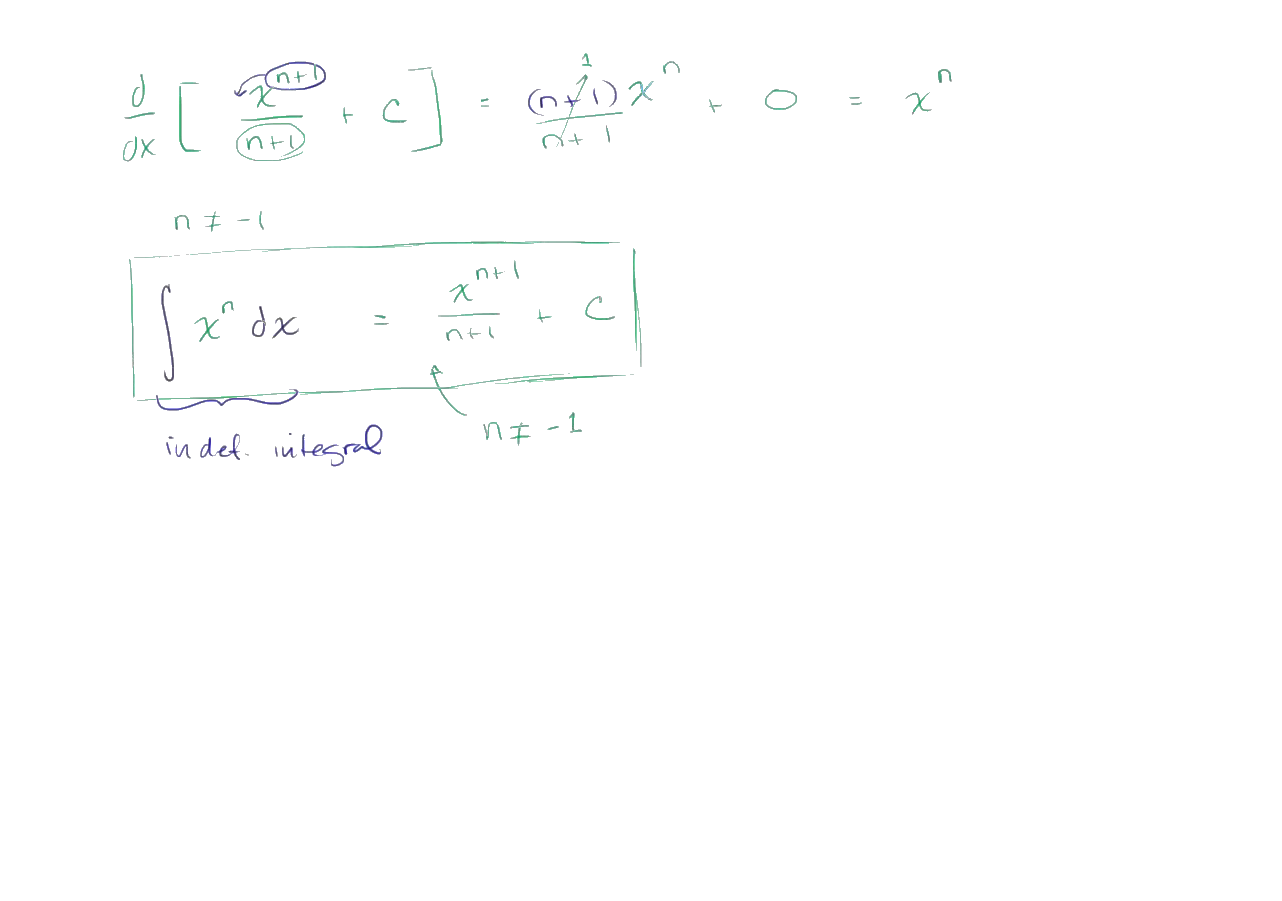 d/dx [ x^(n+1)/(n+1) + C ] = (n+1)x^n/(n+1) 1 + 0 = x^n
n ≠ -1
∫ x^n dx = x^(n+1)/(n+1) + C
n ≠ -1
indef. integral